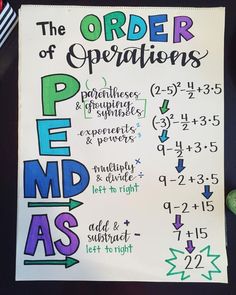 The ORDER
of Operations
P
(parentheses
& grouping
symbols
(2-5)² - 4/2 + 3·5
E
exponents²
& powers³
(-3)² - 4/2 + 3·5
9 - 4/2 + 3·5
MD
multiply ×
& divide ÷
left to right
9 - 2 + 3·5
9 - 2 + 15
AS
add & +
subtract -
left to right
7 + 15
22